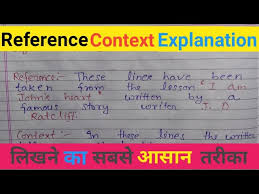 Reference Context Explanation
Reference:- These lines have been
taken from the lesson ' I am
John's heart' written by a
famous story written J. D
Ratcliff.
Context :- In these lines the written
लिखने का सबसे आसान तरीका